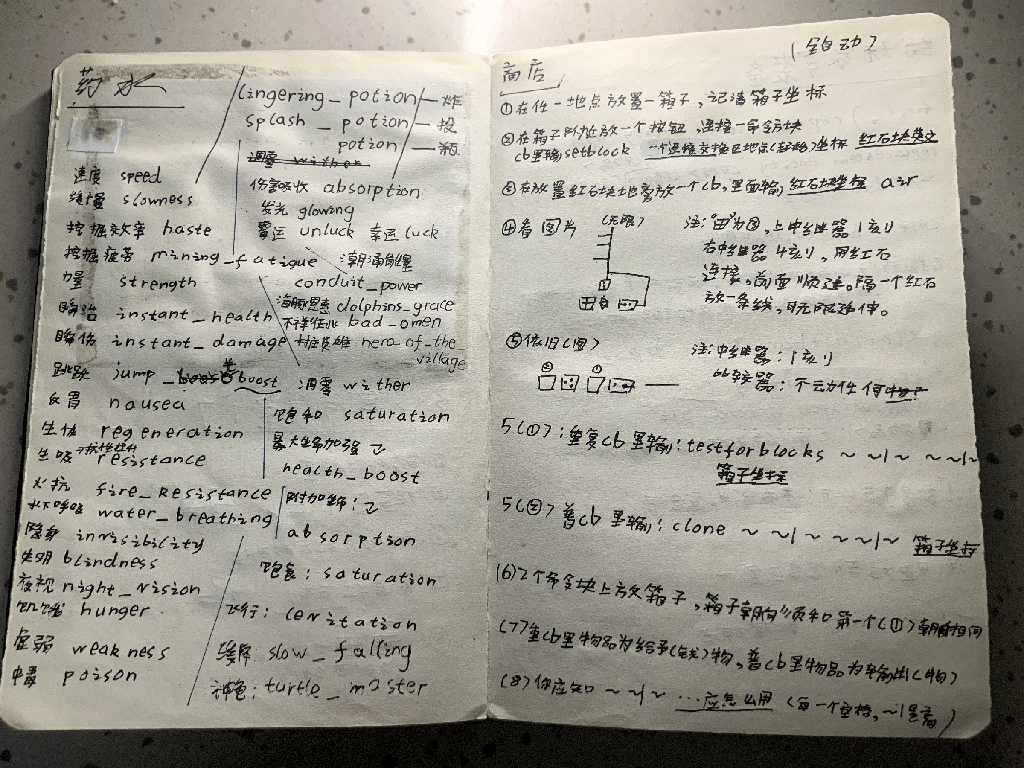 药水
lingering_potion — 炸
splash_potion — 投
potion — 瓶
速度 speed
缓慢 slowness
挖掘效率 haste
挖掘疲劳 mining_fatigue
力量 strength
瞬治 instant_health
瞬伤 instant_damage
跳跃 jump_boost
反胃 nausea
生恢 regeneration
resistance
火抗 fire_resistance
水下呼吸 water_breathing
隐身 invisibility
失明 blindness
夜视 night_vision
饥饿 hunger
虚弱 weakness
中毒 poison
凋零 wither
伤害吸收 absorption
发光 glowing
霉运 unluck 幸运 luck
潮涌能量
conduit_power
海豚恩惠 dolphins_grace
不祥征兆 bad_omen
村庄英雄 hero_of_the_
village
凋零 wither
饱和 saturation
最大生命加强
health_boost
附加
absorption
饱食: saturation
飞行: levitation
缓降 slow_falling
神龟: turtle_master
商店
(全自动)
①在任一地点放置一箱子,记清箱子坐标
②在箱子附近放一个按钮,连接一命令方块
cb里输setblock 一个连接交换区地点(起始)坐标 红石块
③在放置红石块地旁放一个cb,里面输,红石块坐标 air
④看图片 (无限)
注:"由"为③,上中继器1刻,
右中继器4刻,用红石
连接,前面顺连。隔一个红石
放一条线,可无限延伸。
⑤依旧(图)
① ②
注:中继器:1刻
比较器:不
5(①):重复cb里输:testforblocks ~ ~1 ~ ~ ~1~
箱子坐标
5(②)普cb里输:clone ~ ~1 ~ ~ ~1~ 箱子坐标
(6)2个命令块上放箱子,箱子朝向必须和第一个(①)朝向相同
(7)重cb里物品为给予(钱)物,普cb里物品为输出(物)
(8)你应知 ~ ~1 ~ …应怎么用 (每一个空格,~1是高)